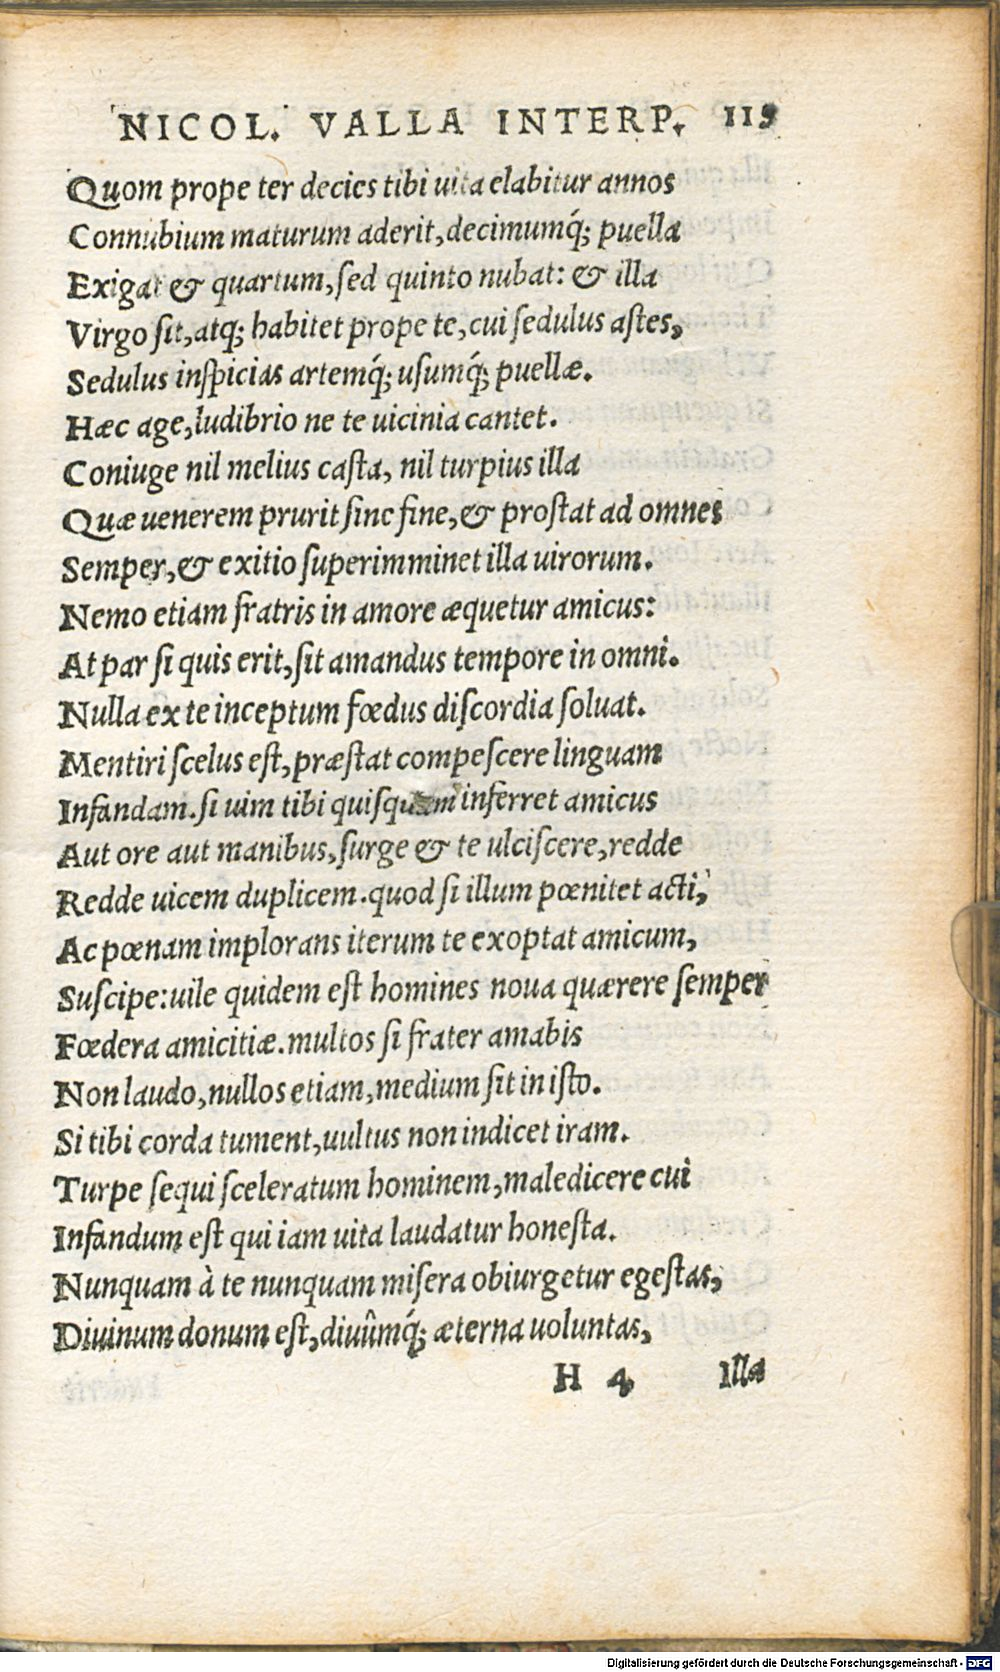 NICOL. VALLA INTERP. 119
Quom prope ter decies tibi uita elabitur annos
Connubium maturum aderit, decimumq́; puella
Exigat & quartum, sed quinto nubat: & illa
Virgo sit, atq; habitet prope te, cui sedulus astes,
Sedulus inspicias artemq́; usumq́; puellæ.
Hæc age, ludibrio ne te uicinia cantet.
Coniuge nil melius casta, nil turpius illa
Quæ uenerem prurit sine fine, & prostat ad omnes
Semper, & exitio superimminet illa uirorum.
Nemo etiam fratris in amore æquetur amicus:
At par si quis erit, sit amandus tempore in omni.
Nulla ex te inceptum fœdus discordia soluat.
Mentiri scelus est, præstat compescere linguam
Infandam. si uim tibi quisquam inferret amicus
Aut ore aut manibus, surge & te ulciscere, redde
Redde uicem duplicem. quod si illum pœnitet acti,
Ac pœnam implorans iterum te exoptat amicum,
Suscipe: uile quidem est homines noua quærere semper
Fœdera amicitiæ. multos si frater amabis
Non laudo, nullos etiam, medium sit in isto.
Si tibi corda tument, uultus non indicet iram.
Turpe sequi sceleratum hominem, maledicere cui
Infandum est qui iam uita laudatur honesta.
Nunquam à te nunquam misera obiurgetur egestas,
Diuinum donum est, diuûmq́; æterna uoluntas,
H 4 Illa
Digitalisierung gefördert durch die Deutsche Forschungsgemeinschaft - DFG